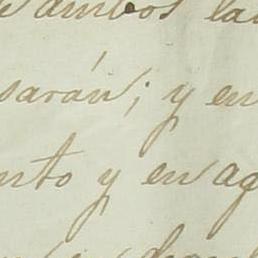 ambos la
sarán; y en
nto y en ag